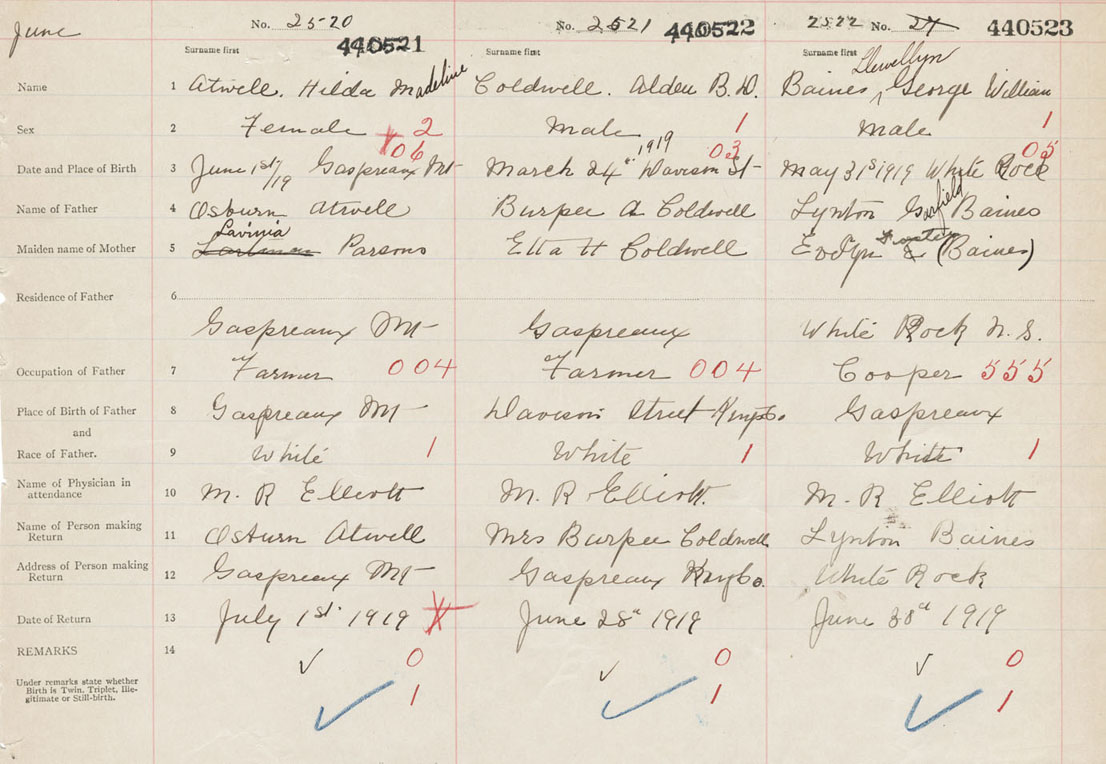 June
No. 2520 440521 No. 2521 440522 2522 No. 440523
Surname first Surname first Surname first
Name 1 Atwell. Hilda Madeline Coldwell. Alden B. D. Baines, Llewellyn George William
Sex 2 Female 2 Male 1 Male 1
06 03 05
Date and Place of Birth 3 June 1st/19 Gaspreaux Mt March 24th 1919 Davison St May 31st 1919 White Rock
Name of Father 4 Osburn Atwell Burpee A Coldwell Lynton Garfield Baines
Maiden name of Mother 5 Lavinia Parsons Etta H Coldwell Evelyn (Baines)
Residence of Father 6
Gaspreaux Mt Gaspreaux White Rock N. S.
Occupation of Father 7 Farmer 004 Farmer 004 Cooper 555
Place of Birth of Father 8 Gaspreaux Mt Davison Street Kings Co. Gaspreaux
and
Race of Father. 9 White 1 White 1 White 1
Name of Physician in
attendance 10 M. R Elliott M. R Elliott. M. R Elliott
Name of Person making
Return 11 Osburn Atwell Mrs Burpee Coldwell Lynton Baines
Address of Person making
Return 12 Gaspreaux Mt Gaspreaux Kings Co. White Rock
Date of Return 13 July 1st 1919 X June 28th 1919 June 1919
REMARKS 14 ✓ 0 ✓ 0 ✓ 0
Under remarks state whether
Birth is Twin, Triplet, Ille-
gitimate or Still-birth. ✓ 1 ✓ 1 ✓ 1